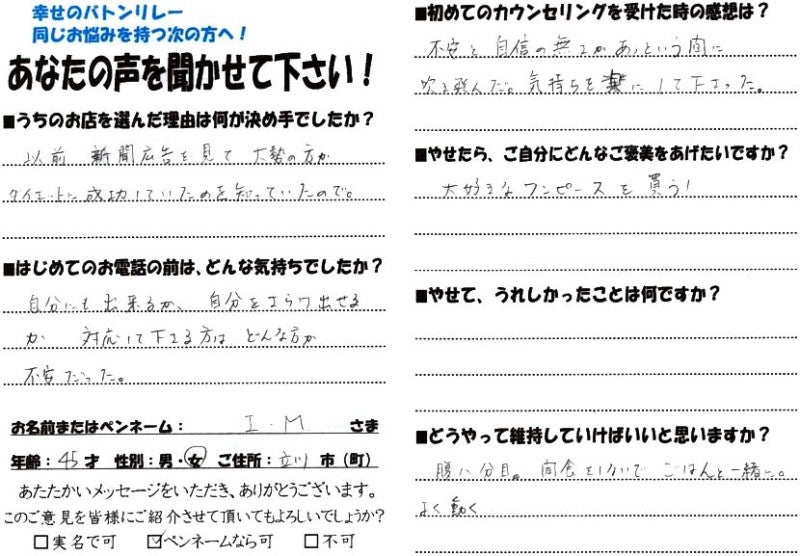 幸せのバトンリレー
同じお悩みを持つ次の方へ！
あなたの声を聞かせて下さい！
■うちのお店を選んだ理由は何が決め手でしたか？
以前 新聞広告を見て 大勢の方が
ダイエットに成功していたのを知っていたので。
■はじめてのお電話の前は、どんな気持ちでしたか？
自分にも出来るか、自分をさらけ出せる
か 対応して下さる方は どんな方か
不安だった。
お名前またはペンネーム： I.M さま
年齢：45才 性別：男・女 ご住所：立川市（町）
あたたかいメッセージをいただき、ありがとうございます。
このご意見を皆様にご紹介させて頂いてもよろしいでしょうか？
□実名で可 ☑ペンネームなら可 □不可
■初めてのカウンセリングを受けた時の感想は？
不安と自信の無さがあっという間に
吹き飛んだ。気持ちを楽にして下さった。
■やせたら、ご自分にどんなご褒美をあげたいですか？
大好きなワンピースを買う！
■やせて、うれしかったことは何ですか？
■どうやって維持していけばいいと思いますか？
腹八分目。間食をしないで ごはんと一緒に。
よく動く